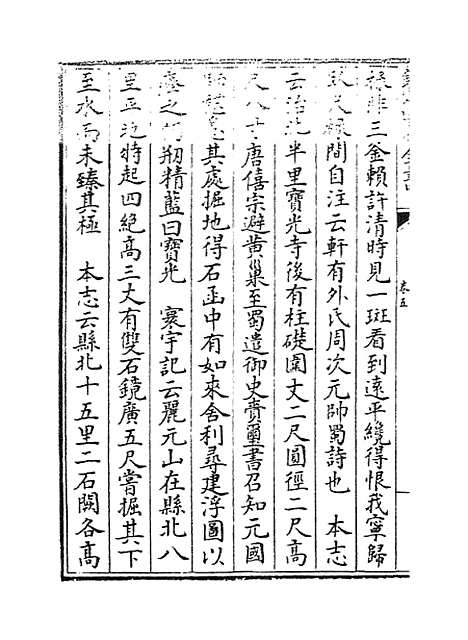 非三金賴許清時見一斑看到遠平纔得恨我寧歸
間自注云軒有外氏周次元帥蜀詩也　本志
云治北半里寶光寺後有柱礎圍丈二尺圓徑二尺高
尺八寸唐僖宗避黃巢至蜀遣御史賫璽書召知元國
其處掘地得石函中有如來舍利尋建浮圖以
之剏精藍曰寶光　寰宇記云麗元山在縣北八
里平地特起四絶高三丈有雙石鏡廣五尺嘗掘其下
至水而未臻其極　本志云縣北十五里二石闕各高
卷五